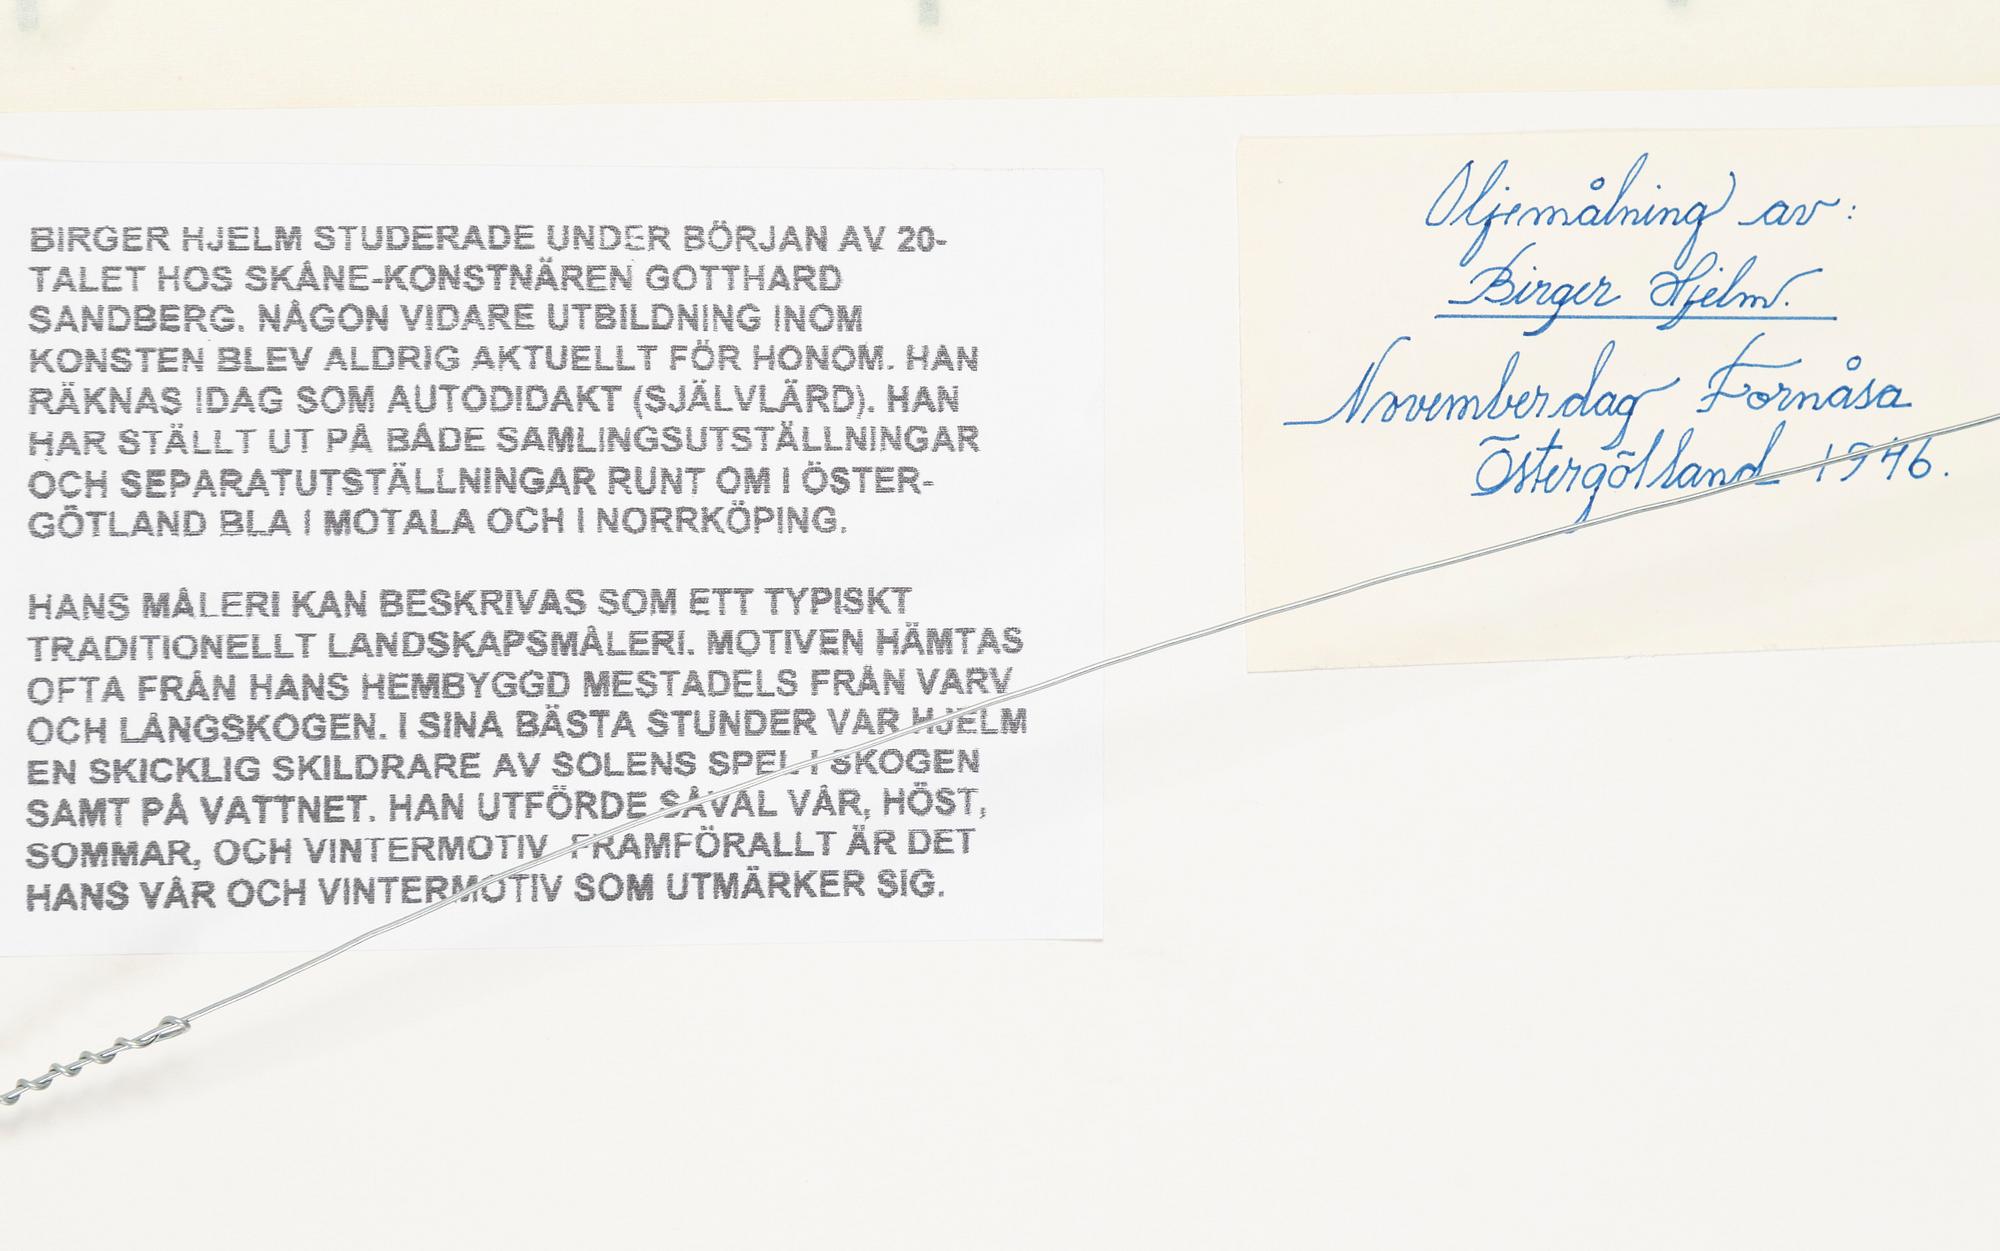 BIRGER HJELM STUDERADE UNDER BÖRJAN AV 20-
TALET HOS SKÅNE-KONSTNÄREN GOTTHARD
SANDBERG. NÅGON VIDARE UTBILDNING INOM
KONSTEN BLEV ALDRIG AKTUELLT FÖR HONOM. HAN
RÄKNAS IDAG SOM AUTODIDAKT (SJÄLVLÄRD). HAN
HAR STÄLLT UT PÅ BÅDE SAMLINGSUTSTÄLLNINGAR
OCH SEPARATUTSTÄLLNINGAR RUNT OM I ÖSTER-
GÖTLAND BLA I MOTALA OCH I NORRKÖPING.
HANS MÅLERI KAN BESKRIVAS SOM ETT TYPISKT
TRADITIONELLT LANDSKAPSMÅLERI. MOTIVEN HÄMTAS
OFTA FRÅN HANS HEMBYGGD MESTADELS FRÅN VARV
OCH LÅNGSKOGEN. I SINA BÄSTA STUNDER VAR HJELM
EN SKICKLIG SKILDRARE AV SOLENS SPEL I SKOGEN
SAMT PÅ VATTNET. HAN UTFÖRDE SÅVÄL VÅR, HÖST,
SOMMAR, OCH VINTERMOTIV FRAMFÖRALLT ÄR DET
HANS VÅR OCH VINTERMOTIV SOM UTMÄRKER SIG.
Oljemålning av:
Birger Hjelm.
Novemberdag Fornåsa
Östergötland 1946.